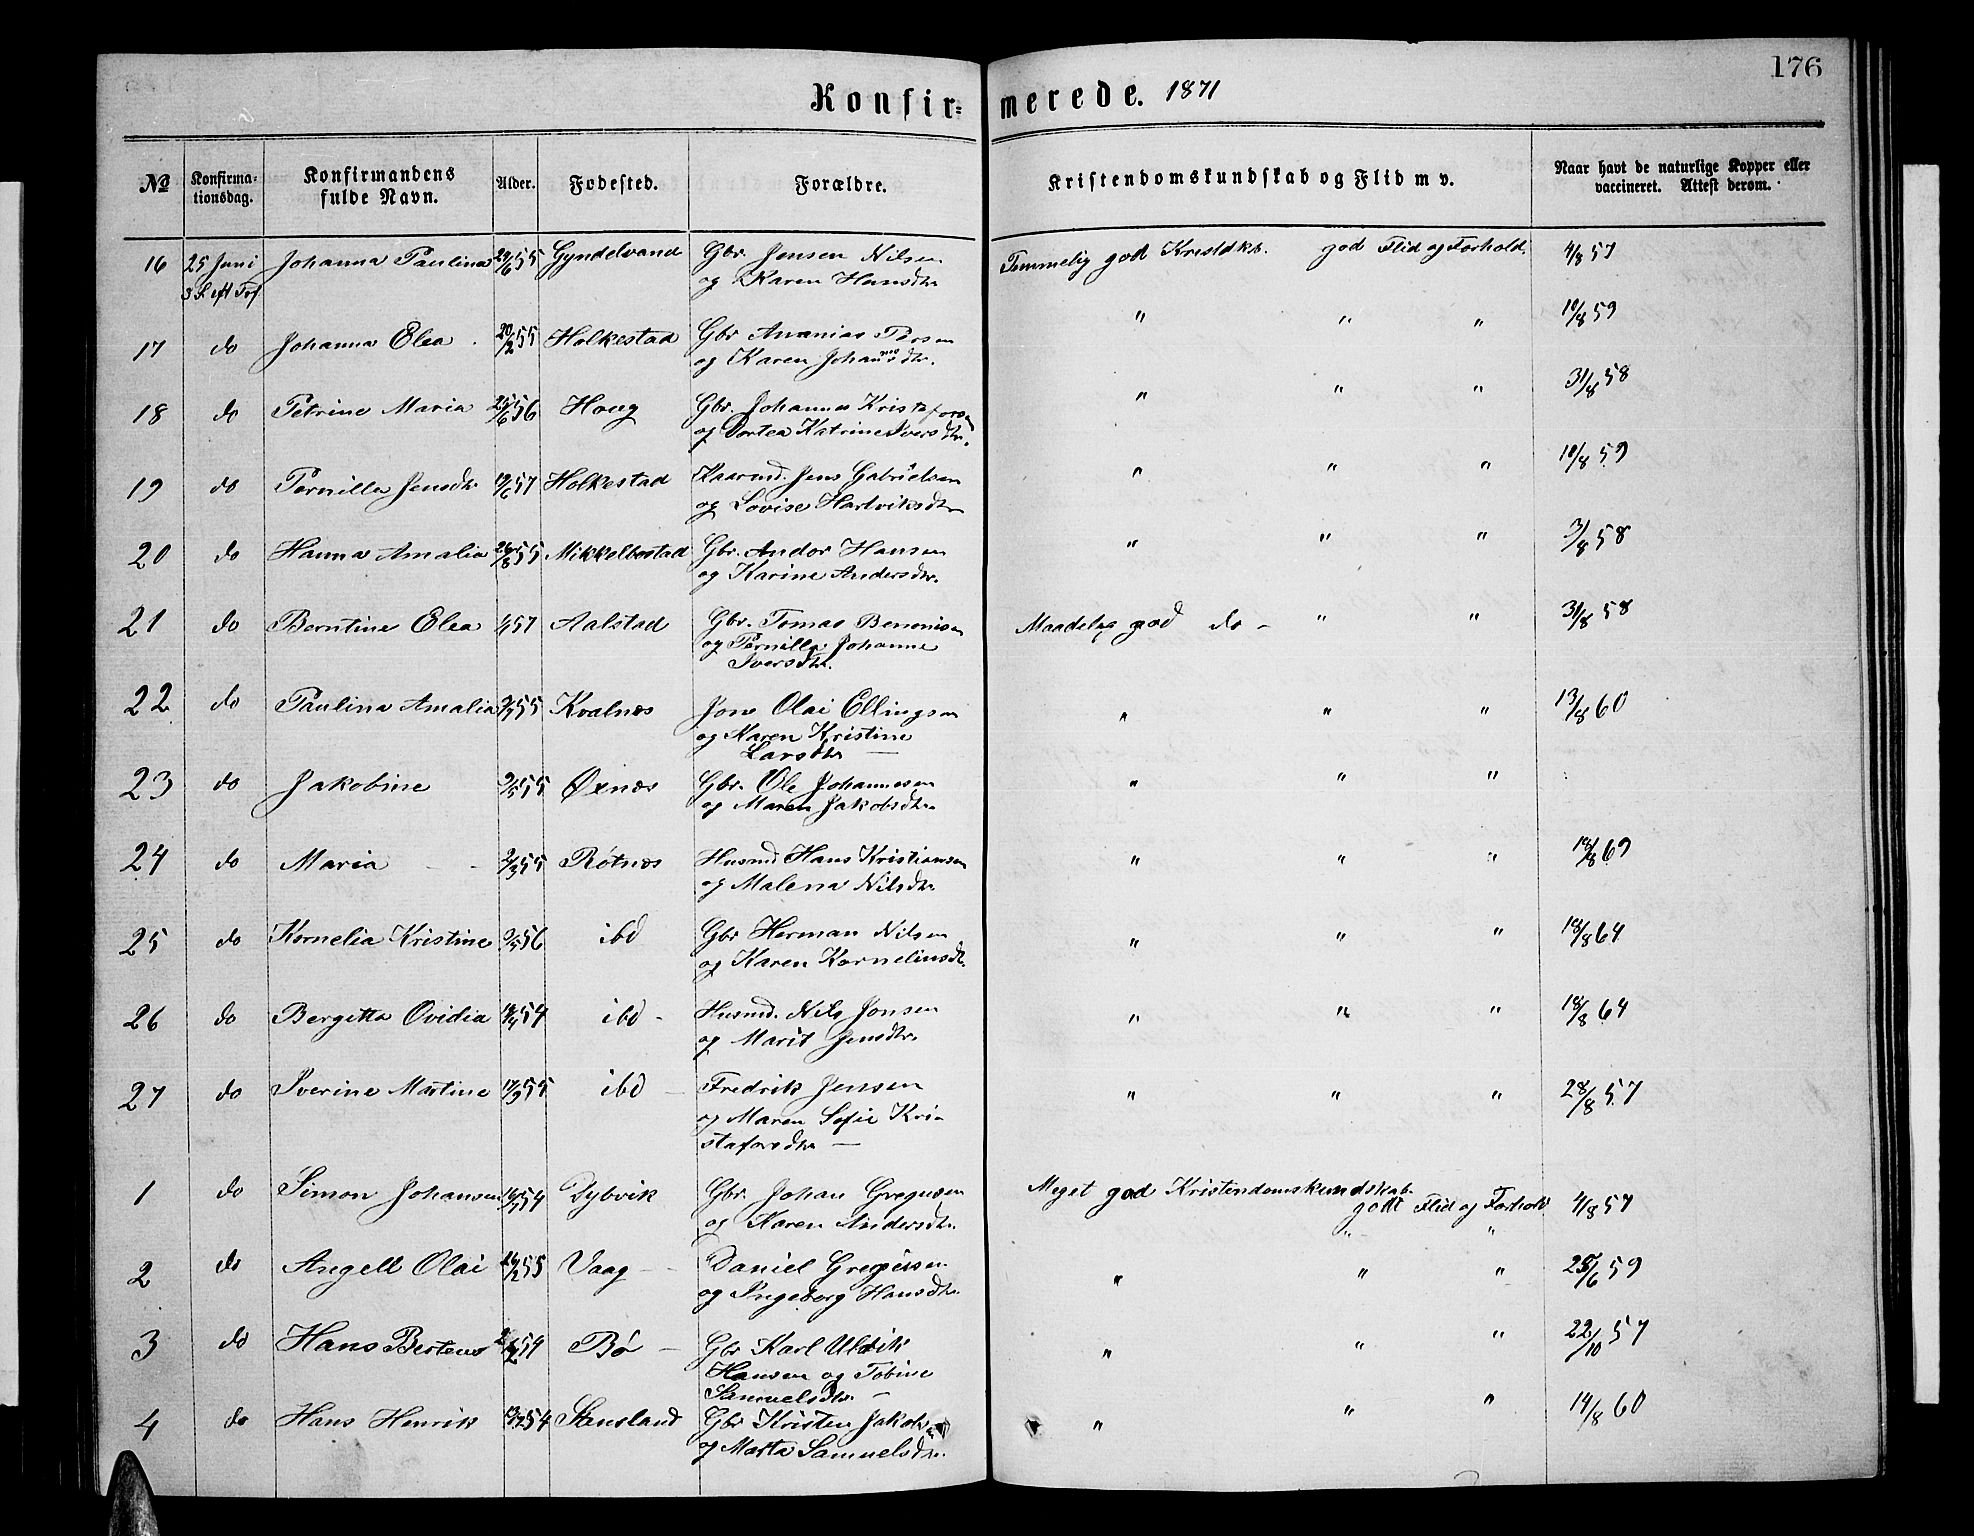 176
Konfir= merede. 1871
No Konfirma- Konfirmandens Alder. Fødested. Forældre. Kristendomskundskab og Flid m v. Naar havt de naturlige Kopper eller
tionsdag. fulde Navn. vaccineret. Attest derom.
16 25 Juni Johanna Paulina 29/6 55 Gyndelvand Gbr. Jensen Nilsen Temmelig god Kristdkb. god Flid og Forhold. 4/8 57
3 S. eft Tref og Karen Hansdtr
17 do Johanna Elea 20/2 55 Holkestad Gbr Ananias Persen " " " 10/8 59
og Karen Johannesdtr.
18 do Petrine Maria 25/6 56 Houg Gbr. Johannes Kristaforsen " " " 31/8 58
og Dortea Katrine Iversdtr.
19 do Pernilla Jensdtr 19/6 57 Holkestad Jens Gabrielsen " " " 10/8 59
og Lovise Hartviksdtr
20 do Hanna Amalia 26/8 55 Mikkelbostad Gbr. Andor Hansen " " " 3/8 58
og Karine Andersdtr.
21 do Berntine Elea 57 Aalstad Gbr. Tomas Benonisen Maadelig god do - " " 31/8 58
og Pernilla Johanne
Iversdtr.
22 do Paulina Amalia 55 Kvalnes Jon Olai Ellingsen " " " 13/8 60
og Karen Kristine
Larsdtr —
23 do Jakobine 9/5 55 Øxnes Gbr. Ole Johannesen " " "
og Maren Jakobsdtr.
24 do Maria - - 2/3 55 Røtnes Husmd Hans Kristiansen " " " 18/8 69
og Malena Nilsdtr
25 do Kornelia Kristine 56 ibd Gbr Herman Nilsen " " " 18/8 64
og Karen Korneliusdtr.
26 do Bergitta Ovidia 54 ibd - Husmd. Nils Jonsen " " " 18/8 64
og Marit Jensdtr.
27 do Iverine Martine 17/9 55 ibd - Fredrik Jensen " " " 28/8 57
og Maren Sofie Kri-
staforsdtr —
1 do Simon Johansen 54 Dybvik Gbr. Johan Gregusen Meget god Kristendomskundskab. 4/8 57
godt Flid og Forhold
og Karen Andersdtr. " "
2 do Angell Olai 55 Vaag — Daniel Gregusen " " " 25/6 59
og Ingeborg Hansdtr.
3 do Hans Bertens 54 Bø — Gbr Karl Ulrik " " " 22/10 57
Hansen og Tobine
Samuelsdtr. —
4 do Hans Henrik 54 Stensland Gbr Kristen Jakobsen " " " 14/8 60
og Marta Samuelsdtr.